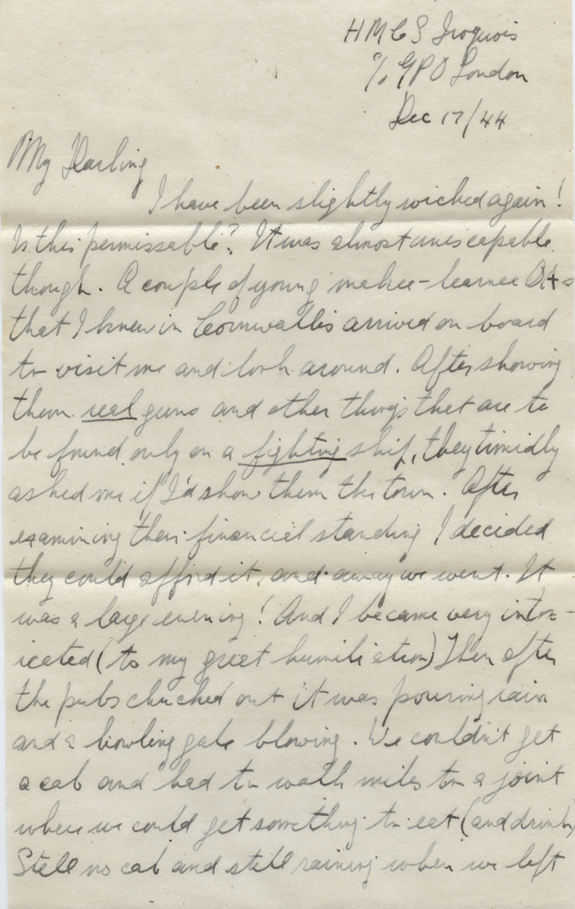 HMCS Iroquois
c/o GPO London
Dec 17/44
My Darling
I have been slightly wicked again!
Is this permissable? It was almost unescapable
though. A couple of young makee-learnee
that I knew in Cornwallis arrived on board
to visit me and look around. After showing
them real guns and other things that are to
be found only on a fighting ship, they timidly
asked me if I'd show them the town. After
examining their financial standing I decided
they could afford it, and away we went. It
was a large evening! And I became very intox-
icated (to my great humiliation) Then after
the pubs chucked out it was pouring rain
and a howling gale blowing. We couldn't get
a cab and had to walk miles to a joint
where we could get something to eat (and drink)
Still no cab and still raining when we left